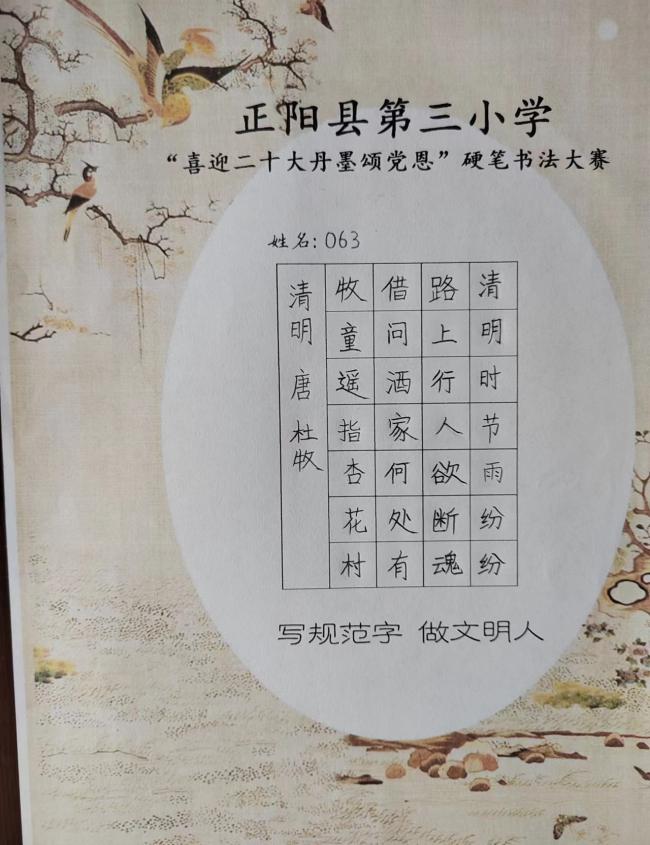 正阳县第三小学
“喜迎二十大丹墨颂党恩”硬笔书法大赛
姓名：063
清明时节雨纷纷
路上行人欲断魂
借问洒家何处有
牧童遥指杏花村
清明 唐 杜牧
写规范字 做文明人